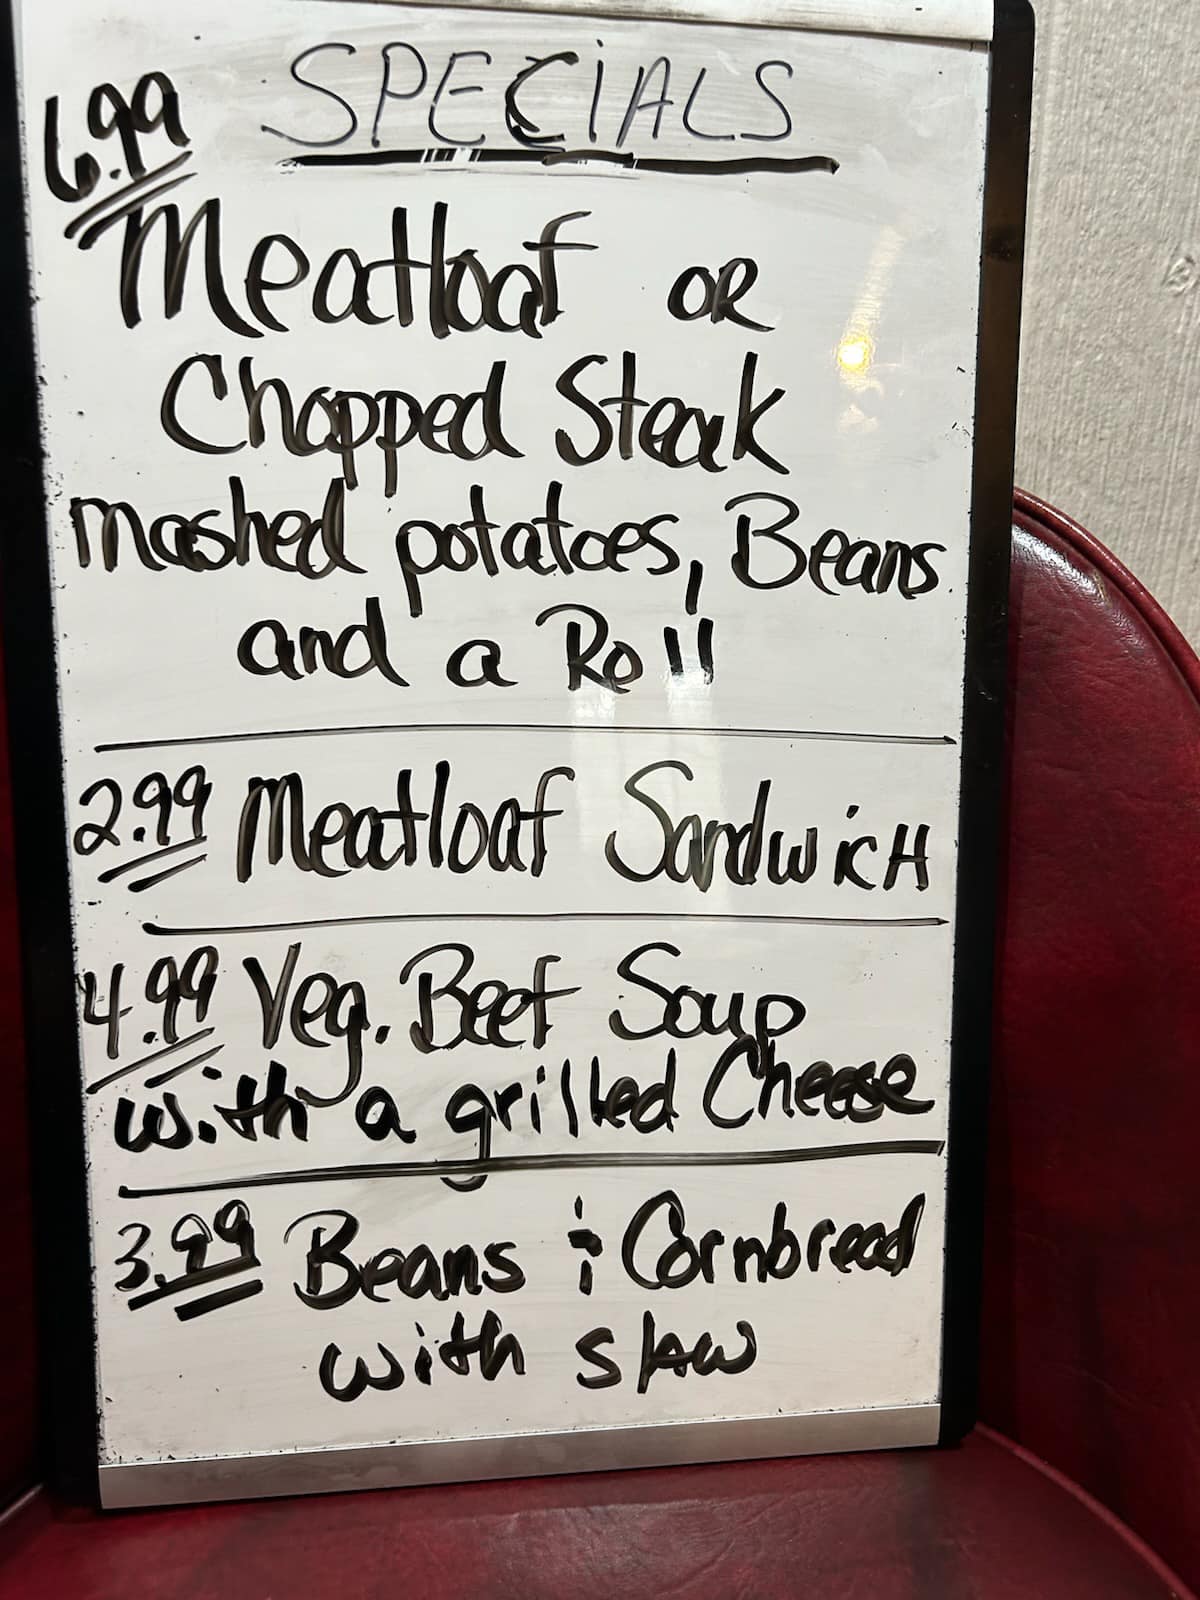 SPECIALS
6.99
Meatloaf OR
Chopped Steak
mashed potatoes, Beans
and a Roll
2.99 Meatloaf Sandwich
4.99 Veg. Beef Soup
with a grilled Cheese
3.99 Beans & Cornbread
with slaw